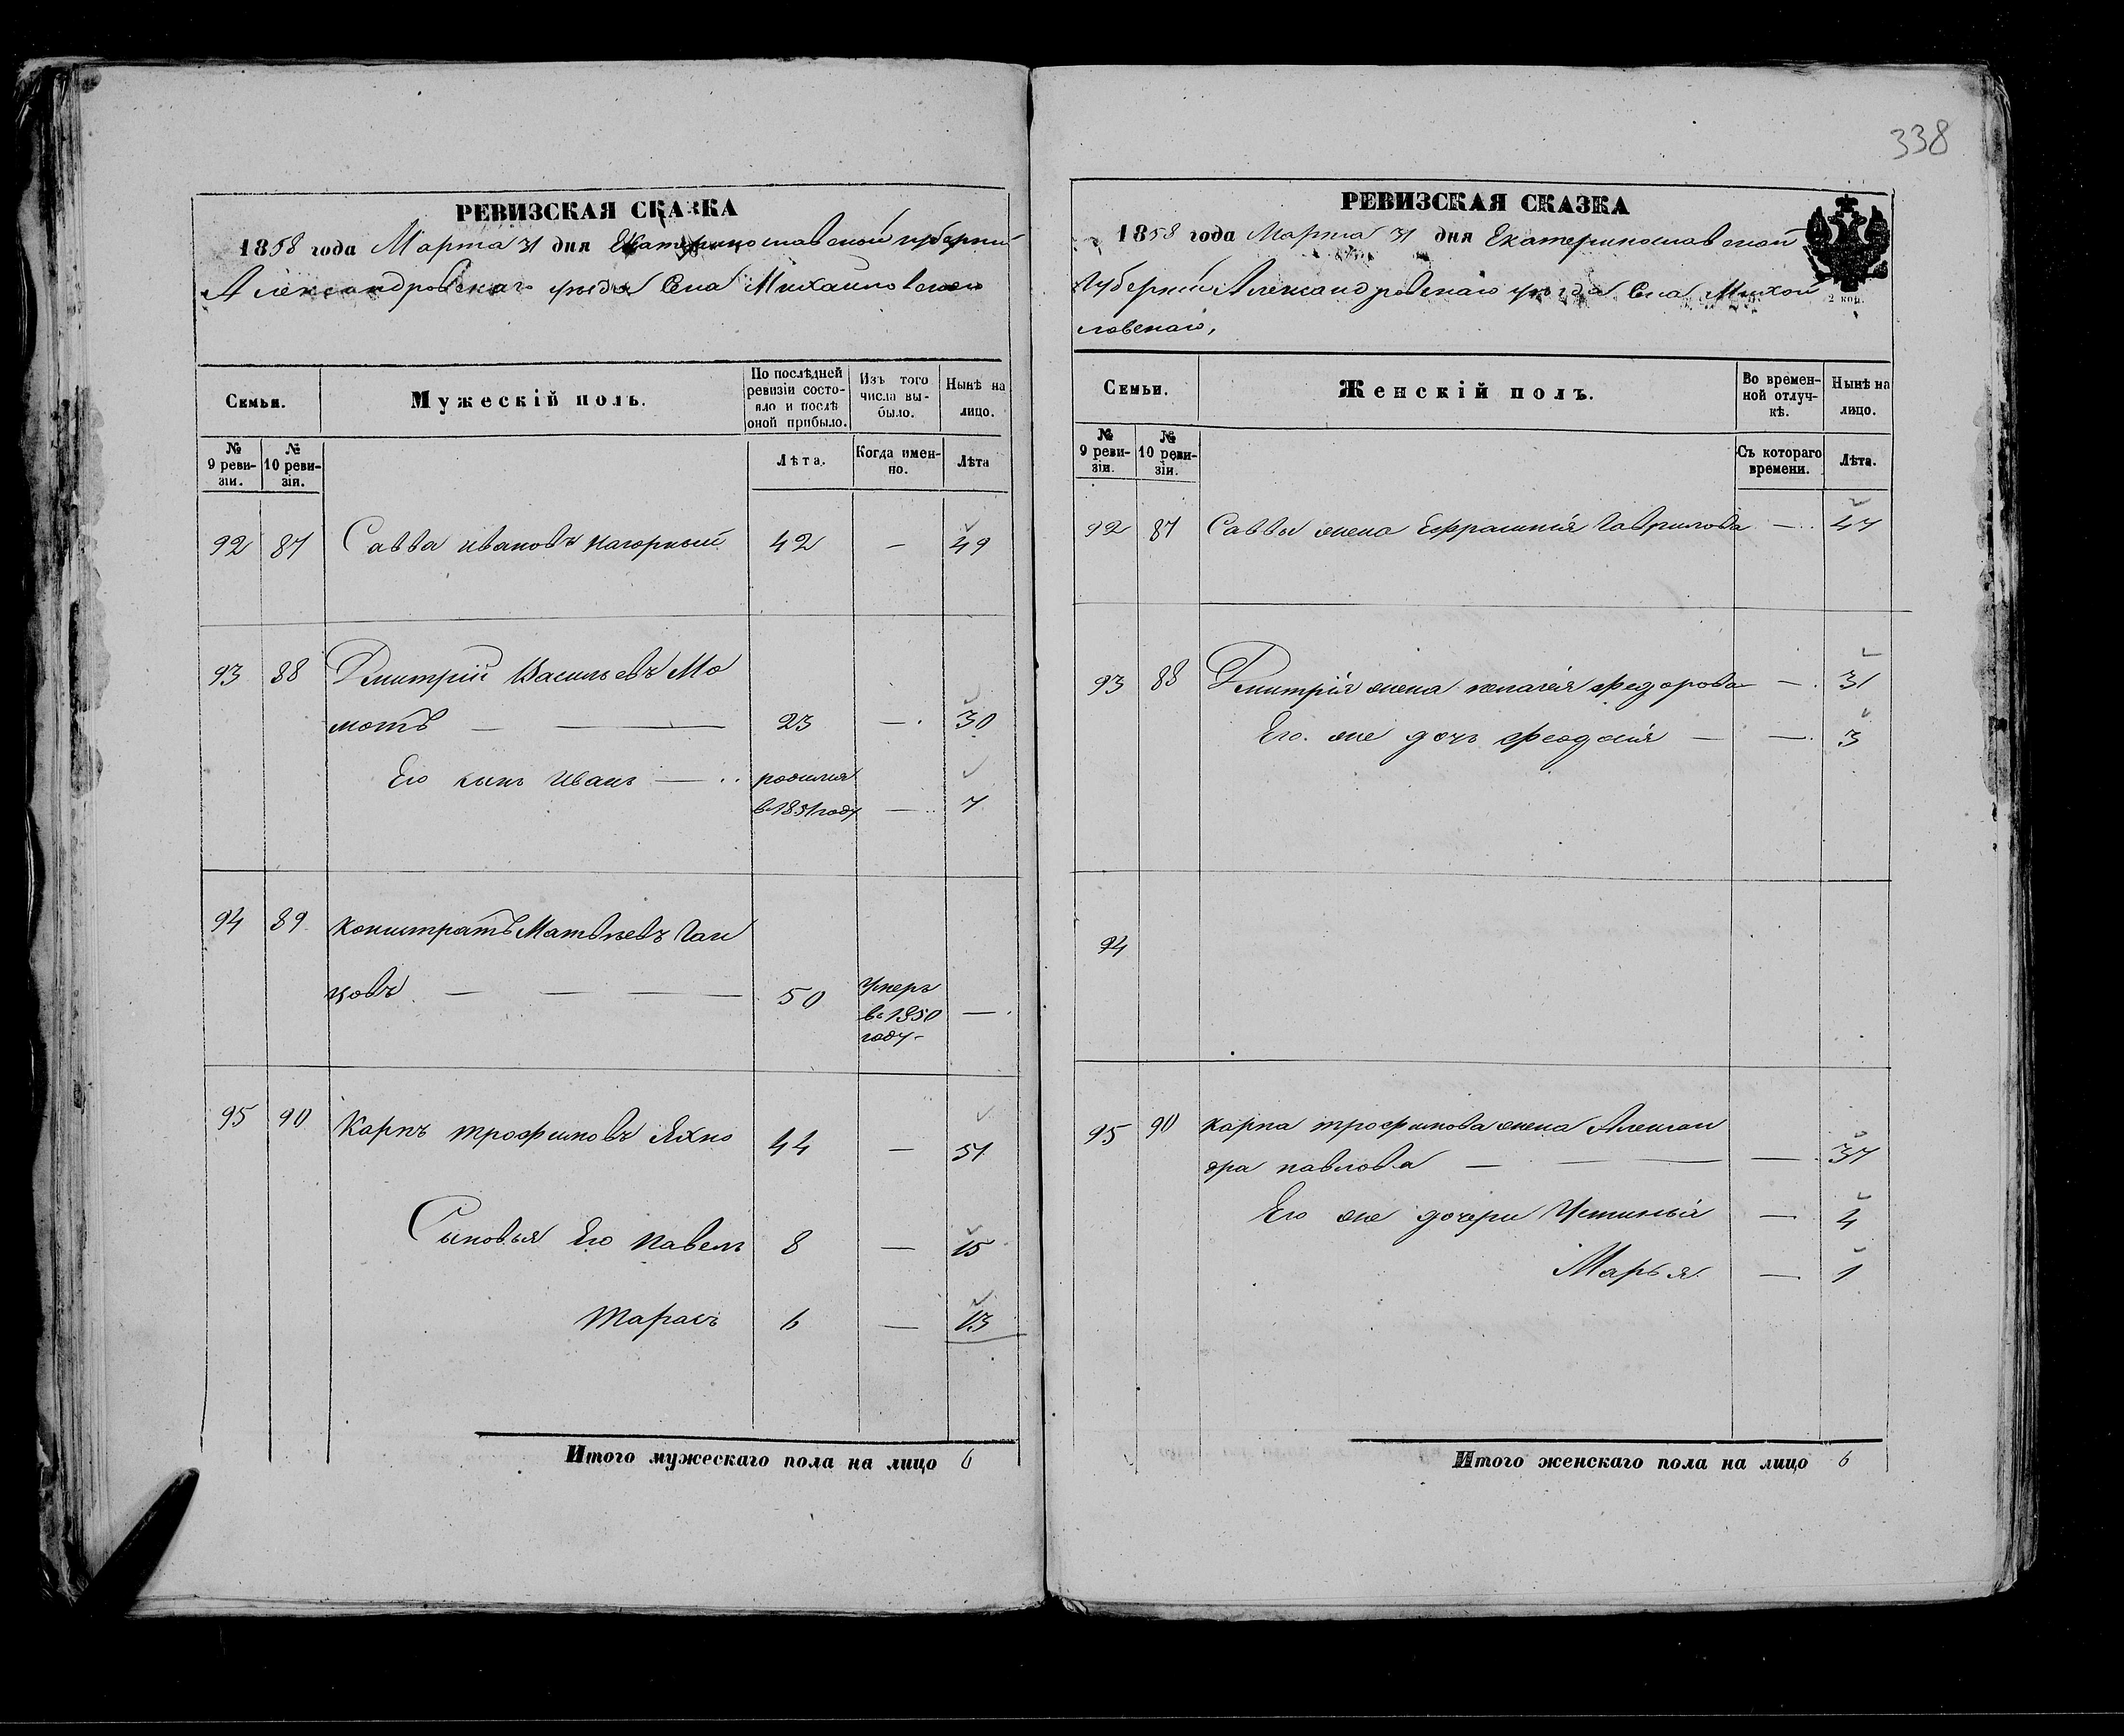 338
РЕВИЗСКАЯ СКАЗКА
1858 года Марта 31 дня Екатеринославской губернии
Александровскаго уѣзда Села Михайловскаго
Семьи.
Мужескій полъ.
По послѣдней ревизіи состояло и послѣ оной прибыло.
Изъ того числа выбыло.
Нынѣ на лицо.
№ 9 ревизіи.
№ 10 ревизіи.
Лѣта.
Когда именно.
Лѣта
92 87 Савва Ивановъ Нагорный 42 — 49
93 88 Дмитрій Васильевъ Мо
мотъ — — 23 — 30
Его сынъ Иванъ — родился
в 1851 году — 7
94 89 Матвѣевъ
50 Умеръ
в 1850 —
году
95 90 Карпъ Трофимовъ Яхно 44 — 51
Сыновья Его Павелъ 8 — 15
Тарасъ 6 — 13
Итого мужескаго пола на лицо 6
РЕВИЗСКАЯ СКАЗКА
1858 года Марта 31 дня Екатеринославской
Губерніи Александровскаго уѣзда Села Михай
ловскаго,
2 коп.
Семьи.
Женскій полъ.
Во временной отлучкѣ.
Нынѣ на лицо.
№ 9 ревизіи.
№ 10 ревизіи.
Съ котораго времени.
Лѣта.
92 87 Саввы жена Гаврилова — 47
93 88 Дмитрія жена Пелагея Федорова — 31
Его же дочь Феодосія — — 3
94
95 90 Карпа Трофимова жена Алексан
дра Павлова — — — 37
Его же дочери Устинья — 4
Марья — 1
Итого женскаго пола на лицо 6